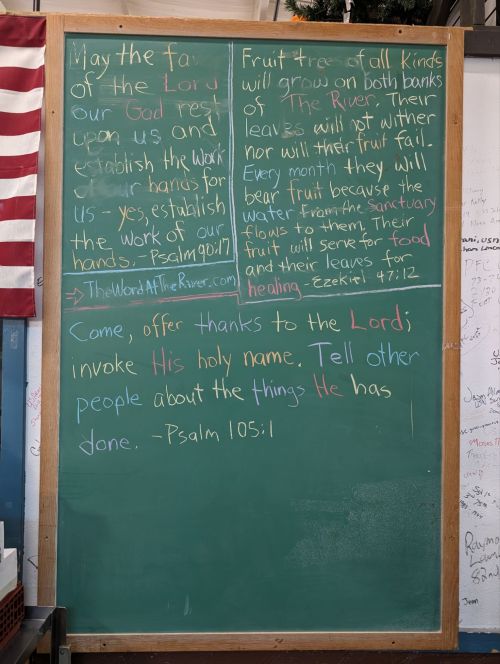 May the fa
of the Lord
our God rest
upon us and
establish the work
of our hands for
us - yes, establish
the work of our
hands. - Psalm 90:17
→ TheWordAtTheRiver.com
Fruit trees of all kinds
will grow on both banks
of The River. Their
leaves will not wither
nor will their fruit fail.
Every month they will
bear fruit because the
water from the Sanctuary
flows to them. Their
fruit will serve for food
and their leaves for
healing - Ezekiel 47:12
Come, offer thanks to the Lord;
invoke His holy name. Tell other
people about the things He has
done. - Psalm 105:1